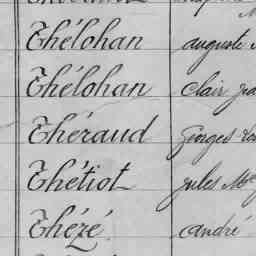 Thélohan auguste
Thélohan Clair
Théraud Georges
Thétiot Jules
Thézé andré